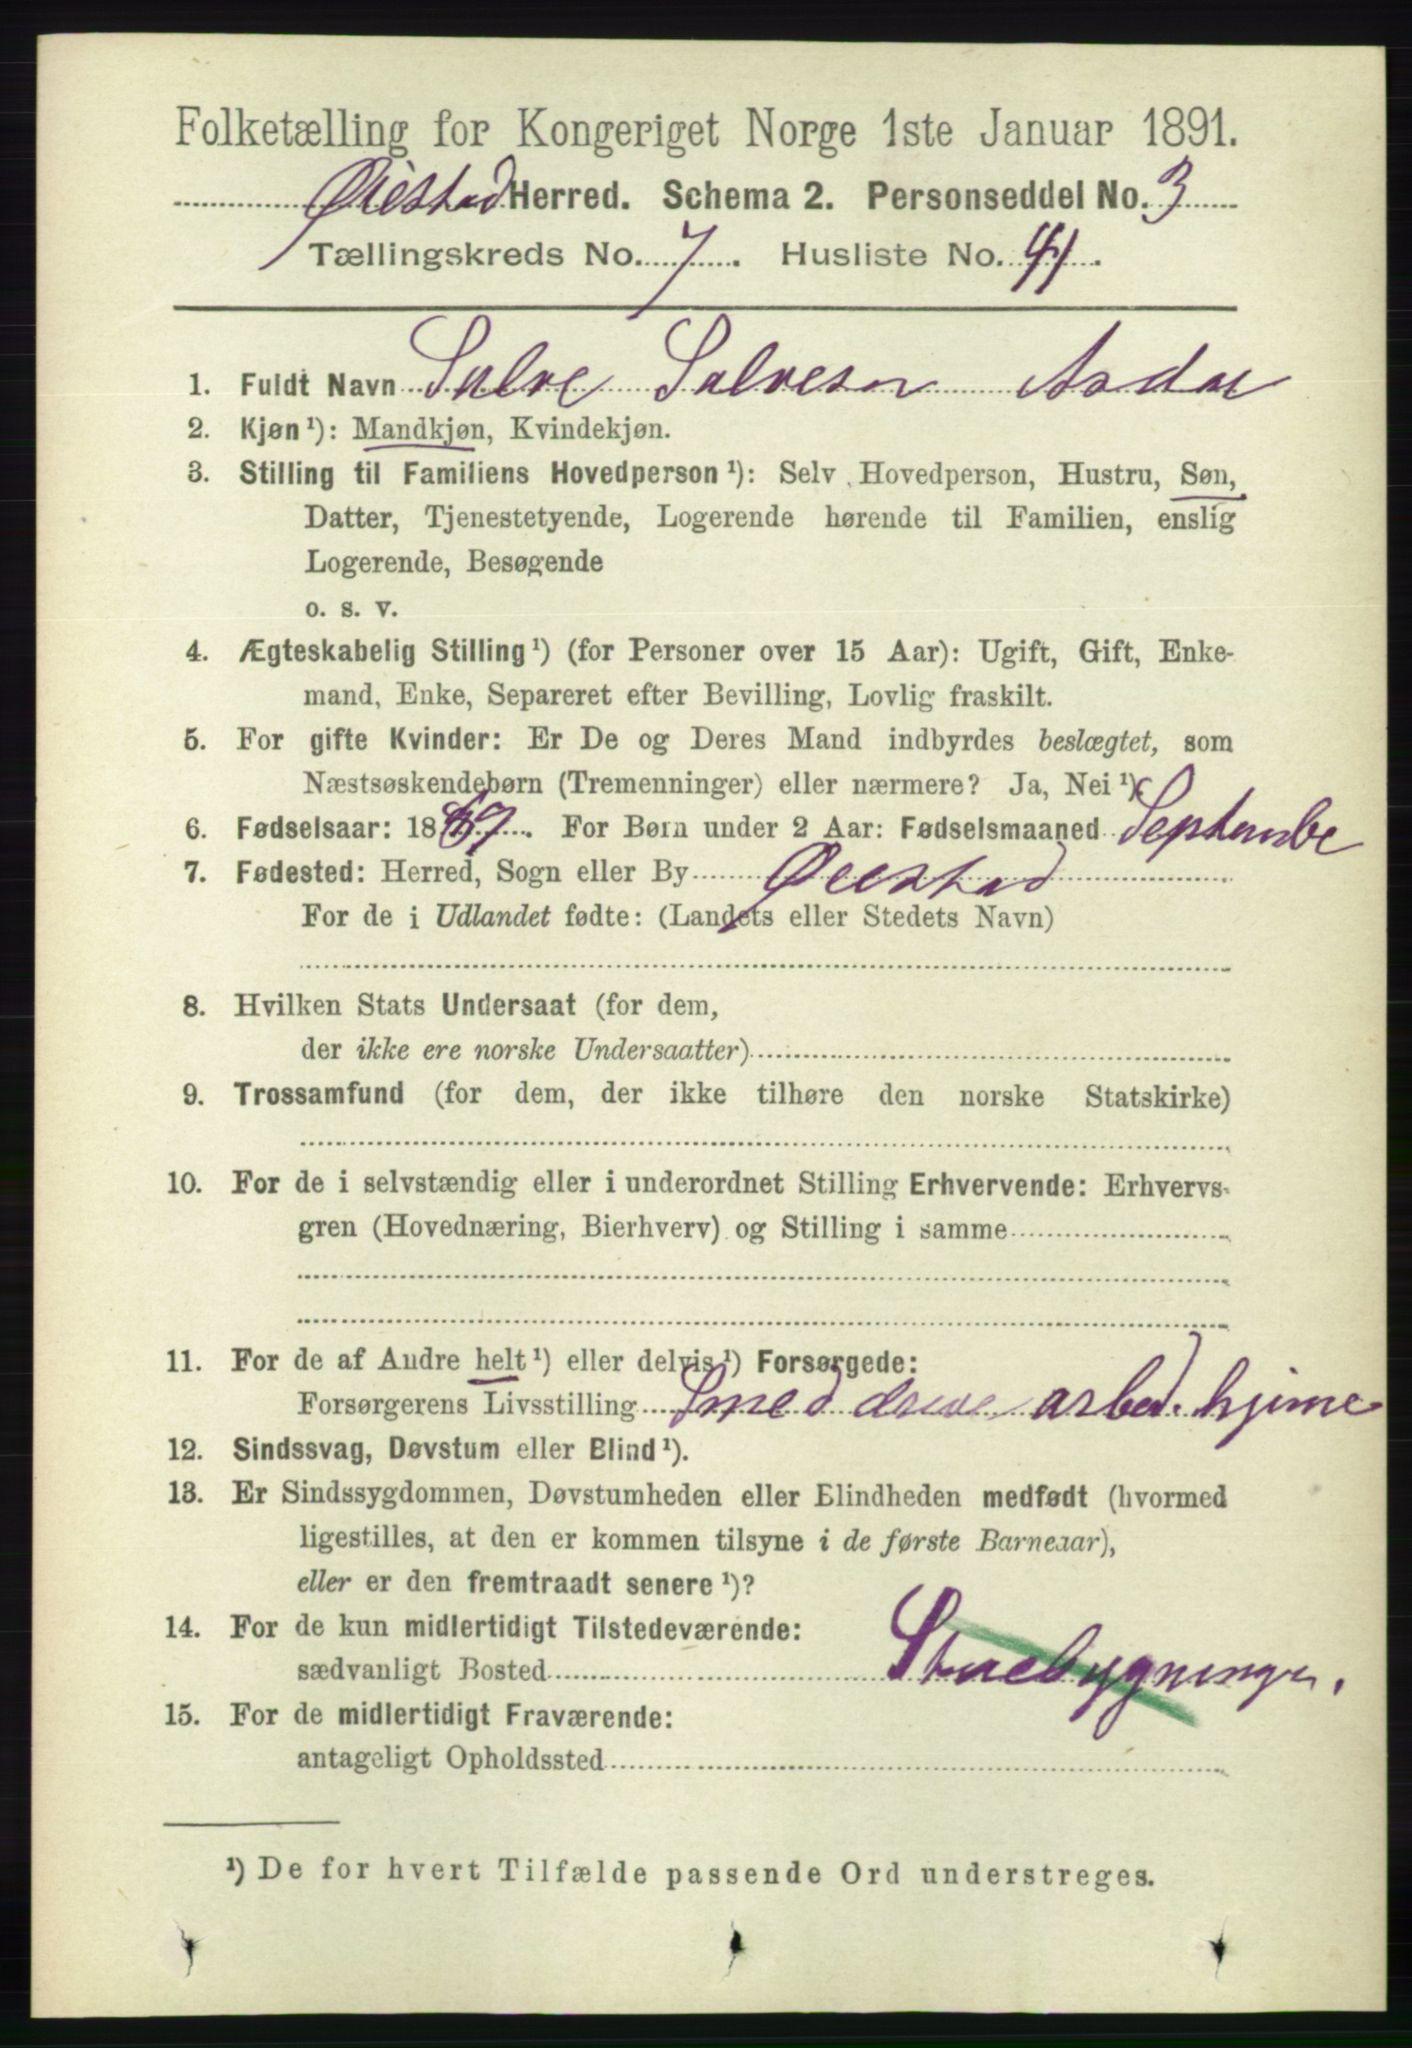 Folketælling for Kongeriget Norge 1ste Januar 1891.
Øiestad Herred. Schema 2. Personseddel No. 3
Tællingskreds No. 7. Husliste No. 41.
1. Fuldt Navn Salve Salvesen
2. Kjøn ¹): Mandkjøn, Kvindekjøn.
3. Stilling til Familiens Hovedperson ¹): Selv Hovedperson, Hustru, Søn,
Datter, Tjenestetyende, Logerende hørende til Familien, enslig
Logerende, Besøgende
o. s. v.
4. Ægteskabelig Stilling ¹) (for Personer over 15 Aar): Ugift, Gift, Enke-
mand, Enke, Separeret efter Bevilling, Lovlig fraskilt.
5. For gifte Kvinder: Er De og Deres Mand indbyrdes beslægtet, som
Næstsøskendebørn (Tremenninger) eller nærmere? Ja, Nei ¹).
6. Fødselsaar: 18. For Børn under 2 Aar: Fødselsmaaned Septembe
7. Fødested: Herred, Sogn eller By Øiestad
For de i Udlandet fødte: (Landets eller Stedets Navn)
8. Hvilken Stats Undersaat (for dem,
der ikke ere norske Undersaatter)
9. Trossamfund (for dem, der ikke tilhøre den norske Statskirke)
10. For de i selvstændig eller i underordnet Stilling Erhvervende: Erhvervs-
gren (Hovednæring, Bierhverv) og Stilling i samme
11. For de af Andre helt ¹) eller delvis ¹) Forsørgede:
Forsørgerens Livsstilling Smed arbed. hjime
12. Sindssvag, Døvstum eller Blind ¹).
13. Er Sindssygdommen, Døvstumheden eller Blindheden medfødt (hvormed
ligestilles, at den er kommen tilsyne i de første Barneaar),
eller er den fremtraadt senere ¹)?
14. For de kun midlertidigt Tilstedeværende:
sædvanligt Bosted Stuebygningen.
15. For de midlertidigt Fraværende:
antageligt Opholdssted
¹) De for hvert Tilfælde passende Ord understreges.